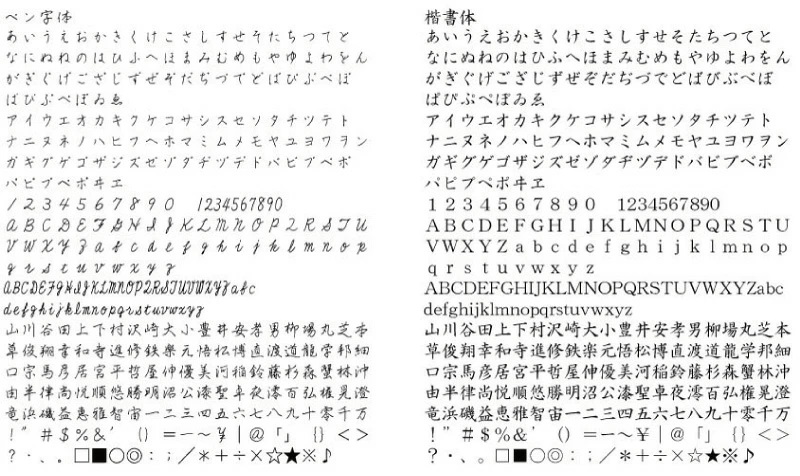 ペン字体
あいうえおかきくけこさしすせそたちつてと
なにぬねのはひふへほまみむめもやゆよわをん
がぎぐげござじずぜぞだぢづでどばびぶべぼ
ぱぴぷぺぽゐゑ
アイウエオカキクケコサシスセソタチツテト
ナニヌネノハヒフヘホマミムメモヤユヨワヲン
ガギグゲゴザジズゼゾダヂヅデドバビブベボ
パピプペポヰヱ
1234567890 1234567890
ABCDEFGHIJKLMNOPQRSTU
VWXYZabcdefghijklmnop
qrstuvwxyz
ABCDEFGHIJKLMNOPQRSTUVWXYZabc
defghijklmnopqrstuvwxyz
山川谷田上下村沢崎大小豊井安孝男柳場丸芝本
草俊翔幸和寺進修鉄楽元悟松博直渡道龍学邦細
口宗馬彦居宮平哲屋伸優美河稲鈴藤杉森蟹林沖
由半律尚悦順悠勝明沼公湊聖卓夜澪百弘権晃澄
竜浜磯益恵雅智宙一二三四五六七八九十零千万
!"#$%&' ()=ー〜¥|@「」{}<>
?・、。□■○◎:;/*+÷×☆★※♪
楷書体
あいうえおかきくけこさしすせそたちつてと
なにぬねのはひふへほまみむめもやゆよわをん
がぎぐげござじずぜぞだぢづでどばびぶべぼ
ぱぴぷぺぽゐゑ
アイウエオカキクケコサシスセソタチツテト
ナニヌネノハヒフヘホマミムメモヤユヨワヲン
ガギグゲゴザジズゼゾダヂヅデドバビブベボ
パピプペポヰヱ
1234567890 1234567890
ABCDEFGHIJKLMNOPQRSTU
VWXYZabcdefghijklmnop
qrstuvwxyz
ABCDEFGHIJKLMNOPQRSTUVWXYZabc
defghijklmnopqrstuvwxyz
山川谷田上下村沢崎大小豊井安孝男柳場丸芝本
草俊翔幸和寺進修鉄楽元悟松博直渡道龍学邦細
口宗馬彦居宮平哲屋伸優美河稲鈴藤杉森蟹林沖
由半律尚悦順悠勝明沼公湊聖卓夜澪百弘権晃澄
竜浜磯益恵雅智宙一二三四五六七八九十零千万
!"#$%&' ()=ー〜¥|@「」{}<>
?・、。□■○◎:;/*+÷×☆★※♪